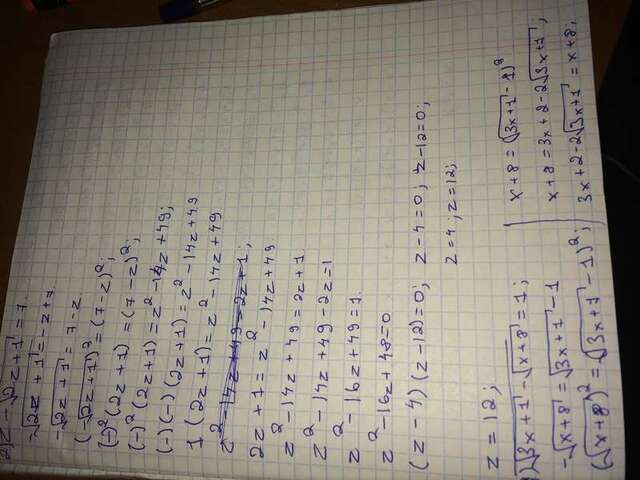 2) z - √2z+1 = 7
-√2z+1 = -z+7
-√2z+1 = 7-z
(-√2z+1)² = (7-z)²;
(-)²(2z+1) = (7-z)²;
(-)²(2z+1) = z²-14z+49;
(-)(-)(2z+1) = z²-14z+49
1(2z+1) = z²-14z+49
z²-14z+49=2z+1;
2z+1 = z²-14z+49
z²-14z+49 = 2z+1
z²-14z+49-2z=1
z²-16z+49=1
z²-16z+48=0
(z-4)(z-12)=0; z-4=0; z-12=0;
z=4; z=12;
z=12;
√3x+1 - √x+8 = 1;
-√x+8 = √3x+1 - 1
(√x+8)² = (√3x+1 - 1)²;
x+8 = (√3x+1 - 1)²
x+8 = 3x+2-2√3x+1;
3x+2-2√3x+1 = x+8;